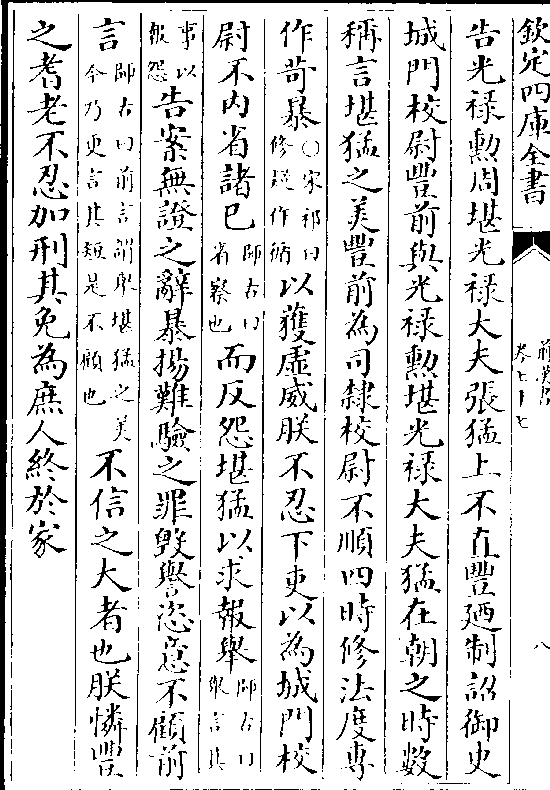 欽定四庫全書
前漢書
卷七十七
八
告光禄勲周堪光禄大夫張猛上不直豐廼制詔御史
城門校尉豐前與光禄勲堪光禄大夫猛在朝之時數
稱言堪猛之美豐前為司隸校尉不順四時修法度專
作苛暴〇宋祁曰修疑作循以獲虛威朕不忍下吏以為城門校
尉不内省諸已師古曰省察也而反怨堪猛以求報舉師古曰舉言其
事以報怨告案無證之辭暴揚難驗之罪毁譽恣意不顧前
言師古曰前言謂譽堪猛之美今乃更言其短是不顧也不信之大者也朕憐豐
之耆老不忍加刑其免為庶人終於家